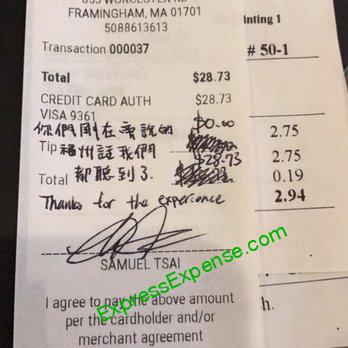 FRAMINGHAM, MA 01701
5088613613
Transaction 000037
Total $28.73
CREDIT CARD AUTH $28.73
VISA 9361
你們剛在旁說的 $0.00
Tip 福州話我們
Total 都聽到了. $28.73
Thanks for the experience
SAMUEL TSAI
I agree to pay the above amount
per the cardholder and/or
merchant agreement
inting 1
# 50-1
2.75
2.75
0.19
2.94
h.
ExpressExpense.com